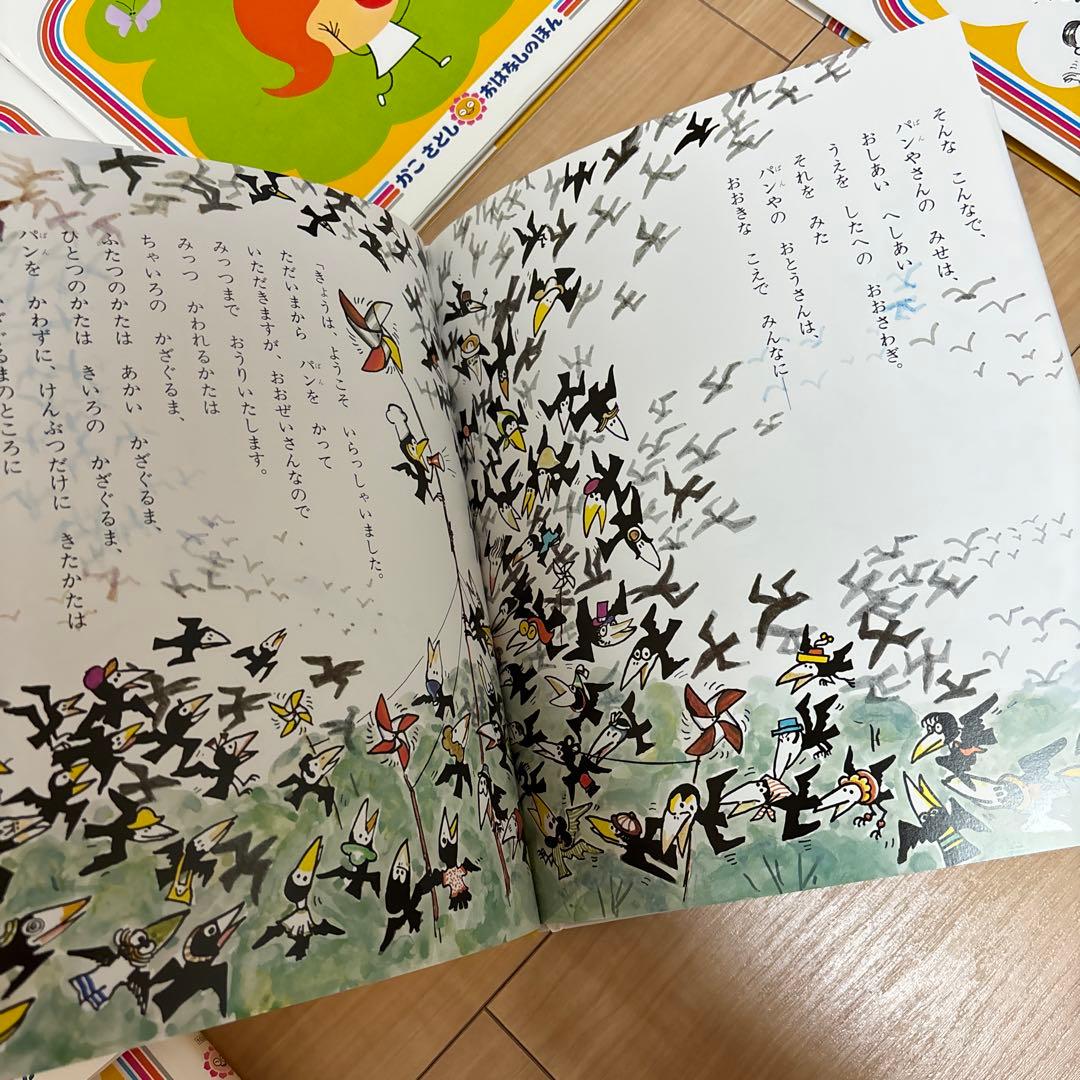 おはなしのほん
かこ さとし
そんな こんなで、
パンやさんの みせは、
ぱん
おしあい へしあい おおさわぎ。
うえを したへの
それを みた
パンやの おとうさんは、
ぱん
おおきな こえで みんなに
「きょうは、ようこそ いらっしゃいました。
ただいまから パンを かって
ぱん
いただきますが、おおぜいさんなので
みっつまで おうりいたします。
みっつ かわれるかたは
ちゃいろの かざぐるま、
ふたつのかたは あかい かざぐるま、
ひとつのかたは きいろの かざぐるま、
パンを かわずに、けんぶつだけに きたかたは
ぱん
るまのところに